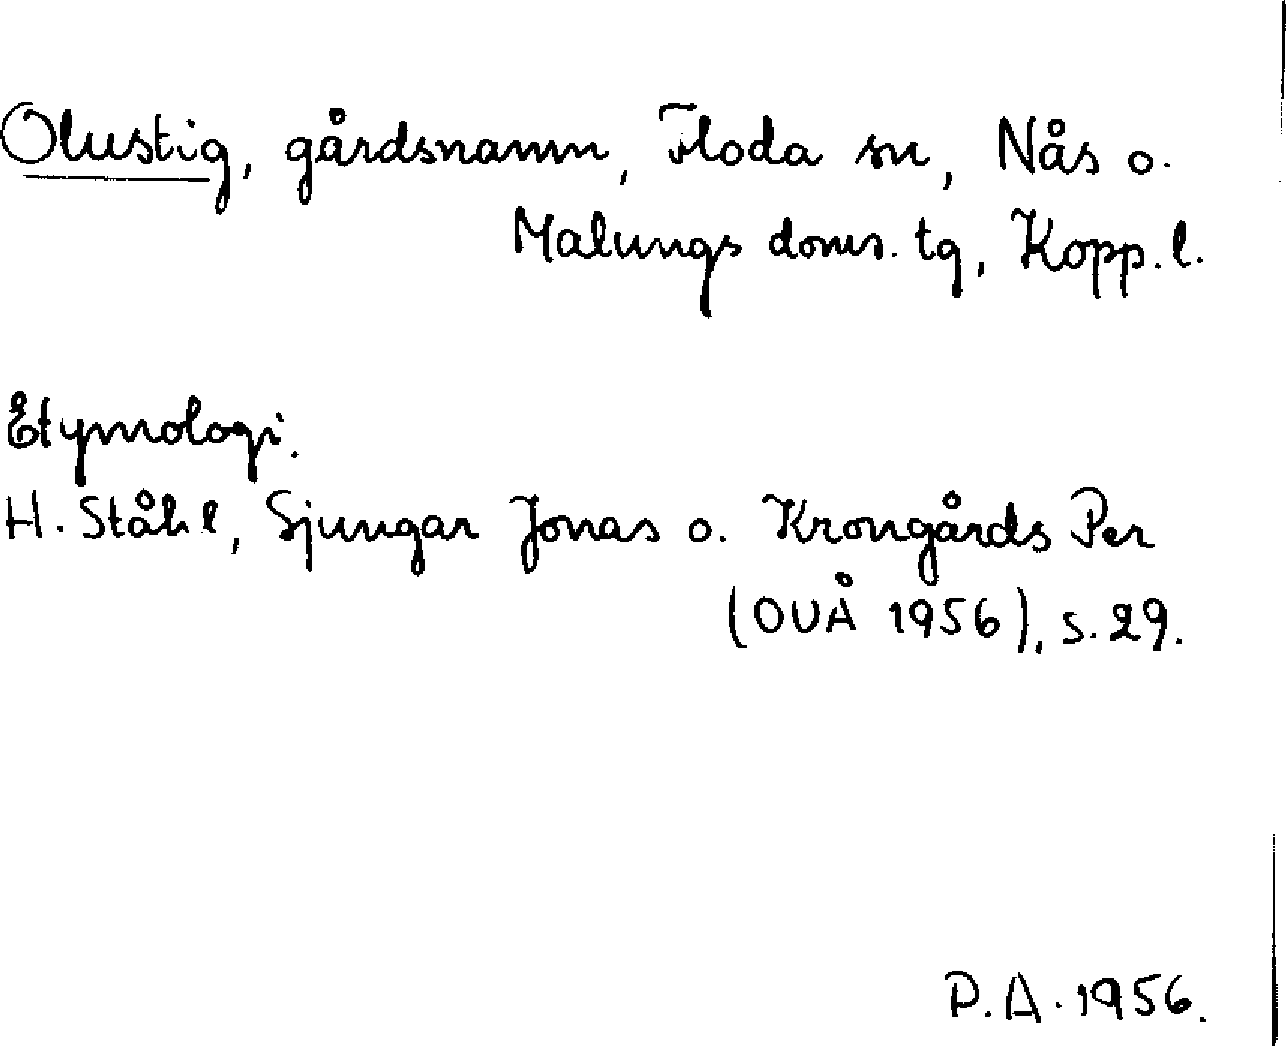 Olustig, gårdsnamn, Floda sn, Nås o.
Malungs doms. tg, Kopp. l.
Etymologi.
H. Ståhl, Sjungar Jonas o. Krongårds Per
(OUÅ 1956), s. 29.
P.A. 1956.